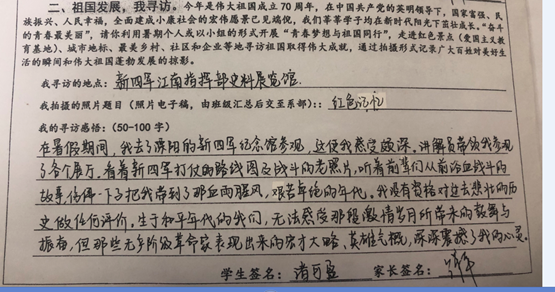 二、祖国发展，我寻访。今年是伟大祖国成立70周年，在中国共产党的英明领导下，国家富强、民
族振兴、人民幸福，全面建成小康社会的宏伟愿景已见端倪，我们莘莘学子均在新时代阳光下茁壮成长。“奋斗
的青春最美丽”，请你利用暑期个人或以小组的形式开展“青春梦想与祖国同行”，走进红色景点（爱国主义教
育基地）、城市地标、最美乡村、社区和企业等地寻访祖国取得伟大成就，通过拍摄形式记录广大百姓对美好生
活的瞬间和伟大祖国蓬勃发展的掠影。
我寻访的地点：新四军江南指挥部史料展览馆.
我拍摄的照片题目（照片电子稿，由班级汇总后交至系部）：：红色记忆
我的寻访感悟：(50-100字)
在暑假期间，我去了溧阳的新四军纪念馆参观，这使我感受颇深。讲解员带领我参观
了各个展厅，看着新四军打仗的路线图及战斗的老照片，听着前辈们从前浴血战斗的
故事，仿佛一下子把我带到了那血雨腥风，艰苦卓绝的年代。我没有资格对过去悲壮的历
史做任何评价，生于和平年代的我们，无法感受那段激情岁月所带来的鼓舞与
振奋，但那些无产阶级革命家表现出来的雄才大略、英雄气概，深深震撼了我的心灵.
学生签名： 家长签名：